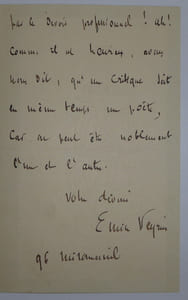 par le devoir professionnel ! ah!
comme il est heureux, avons
nous dit, qu'un critique soit
en même temps un poète,
car on peut être noblement
l'un et l'autre.
votre dévoué
Emile Veyrin
96 miromesnil